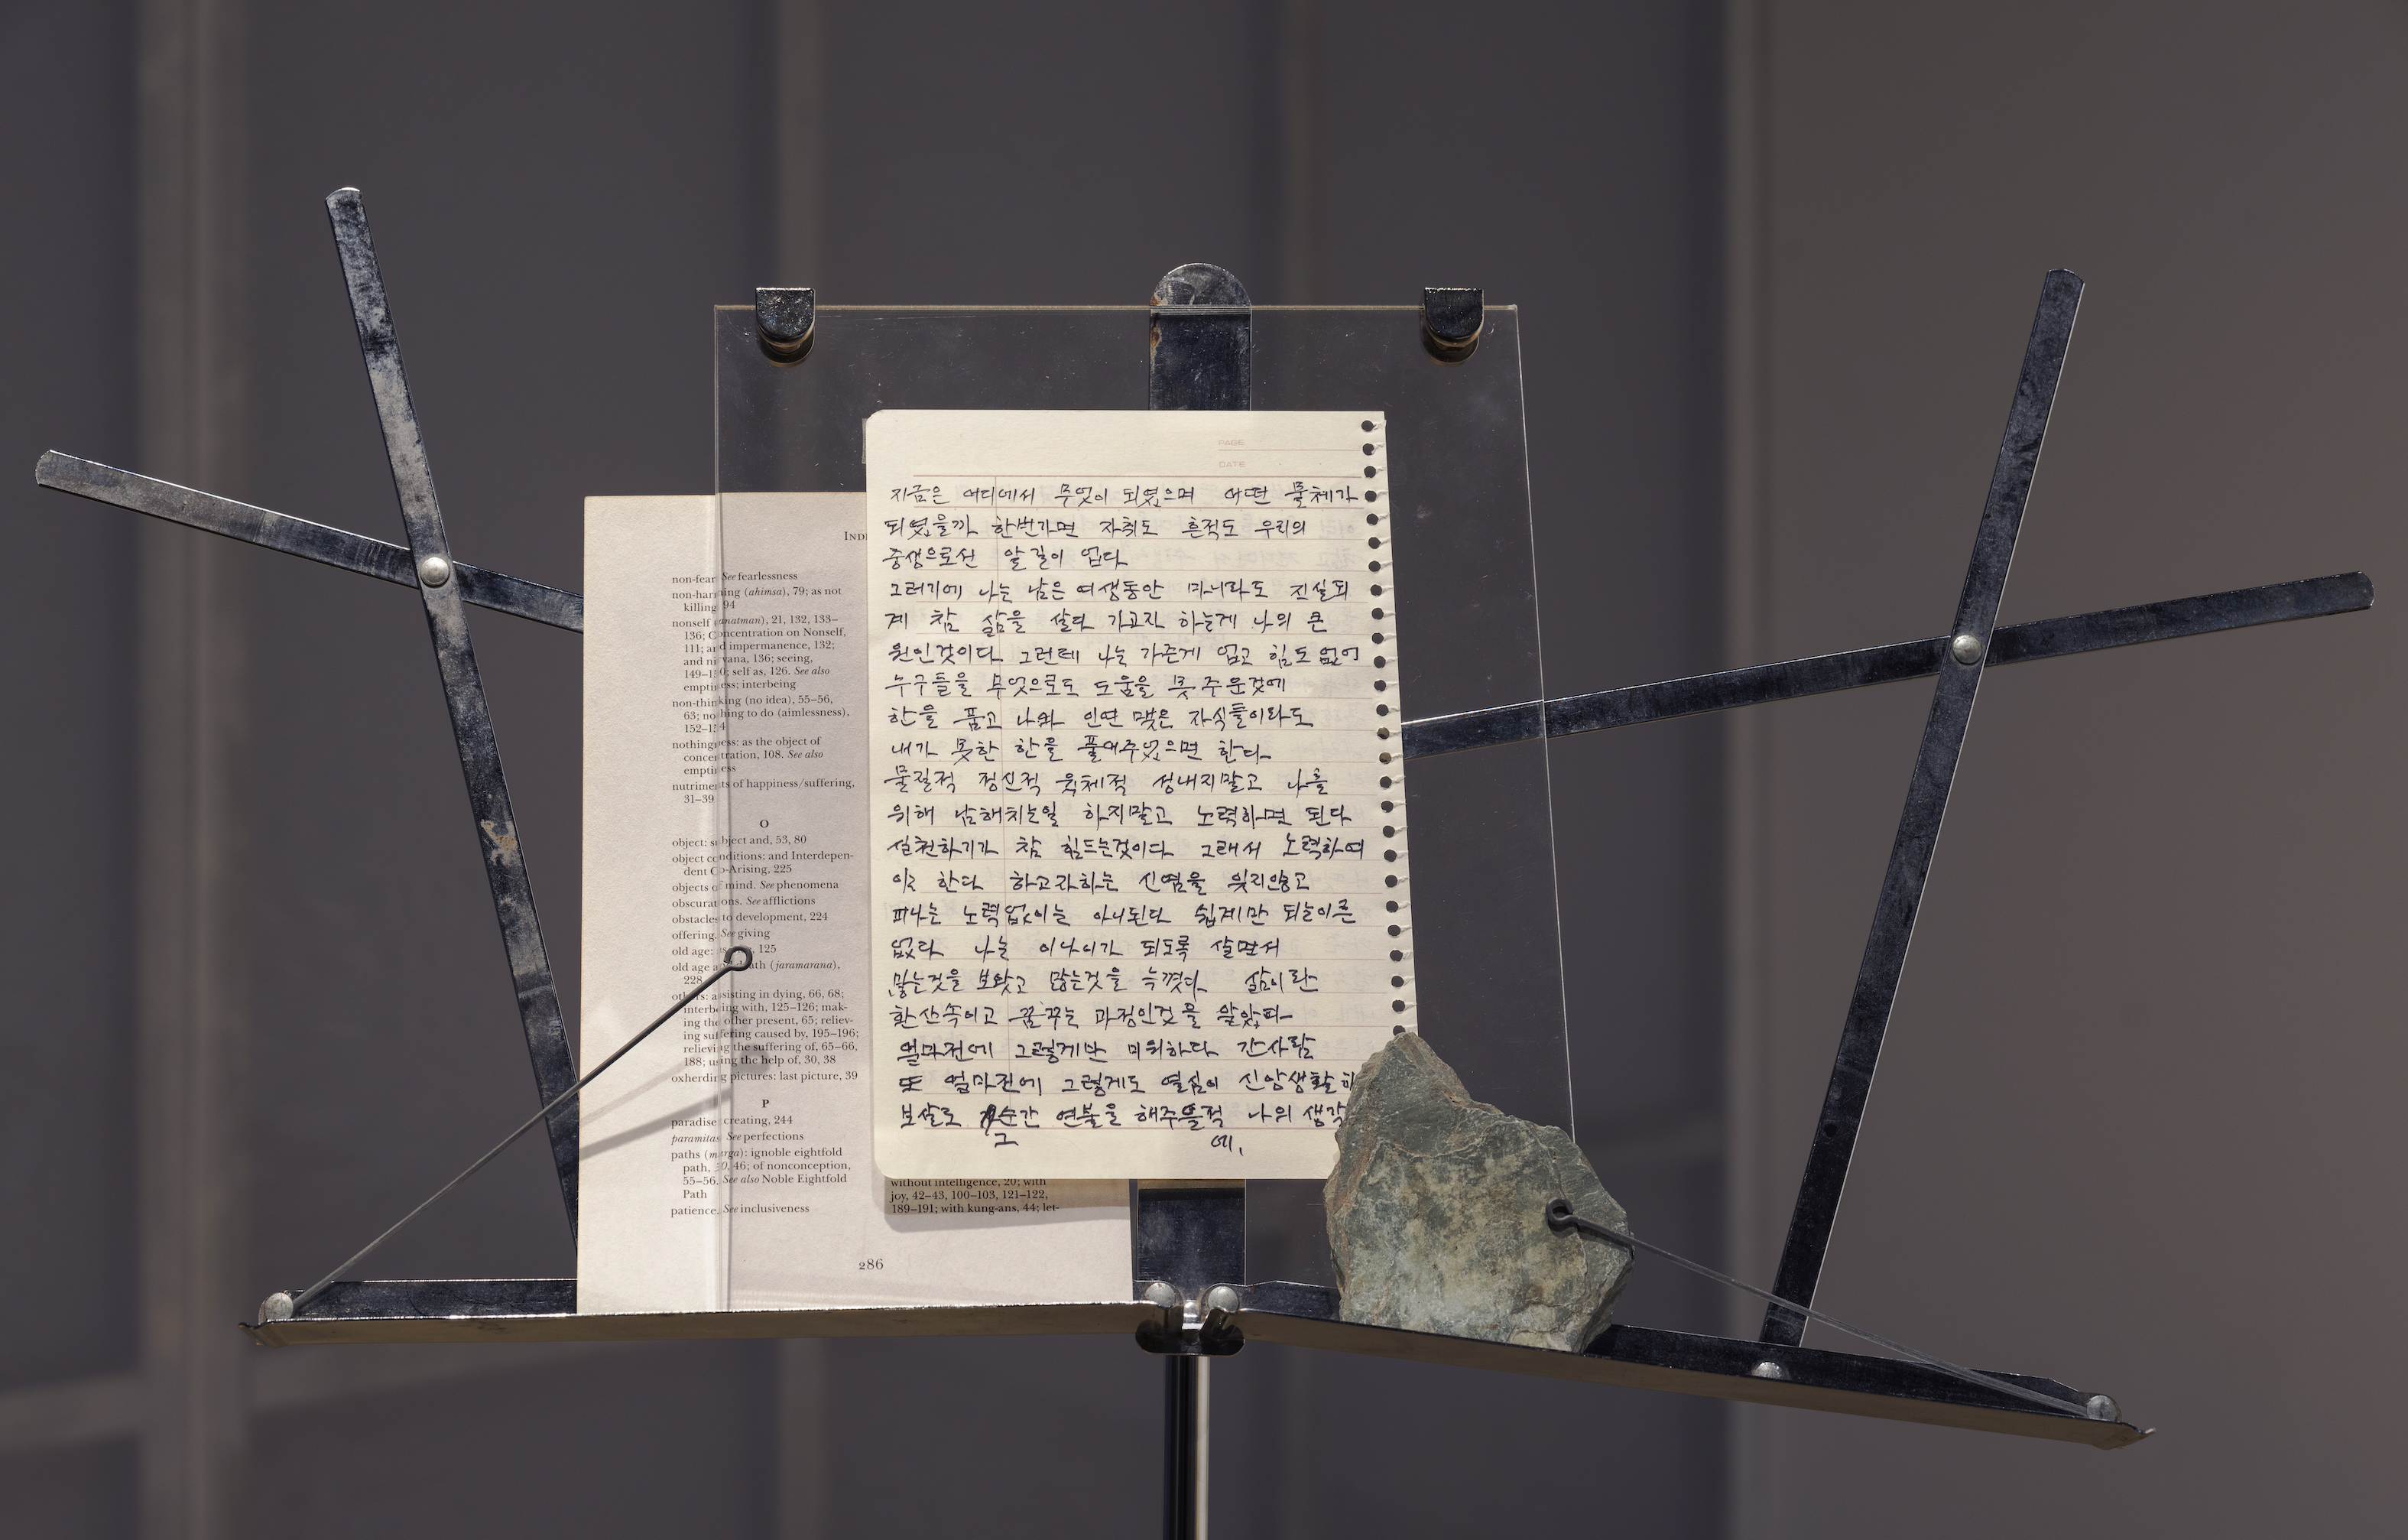 non-fear. See fearlessness
non-harming (ahimsa), 79; as not
killing, 94
nonself (anatman), 21, 132, 133–
136; Concentration on Nonself,
111; and impermanence, 132;
and nirvana, 136; seeing,
self as, 126. See also
emptiness; interbeing
non-thinking (no idea), 55–56,
63; nothing to do (aimlessness),
nothingness: as the object of
concentration, 108. See also
emptiness
nutriments of happiness/suffering,
31–39
O
object: subject and, 53, 80
object conditions: and Interdepen-
dent Co-Arising, 225
objects of mind. See phenomena
obscurations. See afflictions
obstacles to development, 224
offering. See giving
old age: 125
old age and death (jaramarana),
228
others: assisting in dying, 66, 68;
interbeing with, 125–126; mak-
ing the other present, 65; reliev-
ing suffering caused by, 195–196;
relieving the suffering of, 65–66,
188; using the help of, 30, 38
oxherding pictures: last picture, 39
P
paradise: creating, 244
paramitas. See perfections
paths (marga): ignoble eightfold
path, 46; of nonconception,
55–56. See also Noble Eightfold
Path
patience. See inclusiveness
without intelligence, 20; with
joy, 42–43, 100–103, 121–122,
189–191; with kung-ans, 44; let-
286
PAGE
DATE
지금은 어디에서 무엇이 되였으며 어떤 물체가
되였을까 한번가면 자취도 흔적도 우리의
중생으로선 알길이 없다
그러기에 나는 남은 여생동안 마니라도 진실되
게 참 삶을 살다 가고자 하는게 나의 큰
원인것이다 그런데 나는 가즌게 업고 힘도 없어
누구들을 무엇으로도 도움을 못주운것에
한을 품고 나와 인연 맺은 자식들이라도
내가 못한 한을 풀어주었으면 한다
물질적 정신적 육체적 성내지말고 나를
위해 남해치는일 하지말고 노력하면 된다
실천하기가 참 힘드는것이다 그래서 노력하여
야 한다 하고자하는 신염을 잊지않고
피나는 노력없이는 아니된다 쉽게만 되는이른
없다 나는 이나이가 되도록 살면서
많는것을 보왔고 많는것을 늑꼈다 삶이란
환산속이고 꿈꾸는 과정인것을 알았다
얼마전에 그렇게만 미위하다 간사람
또 얼마전에 그렇게도 열심이 신앙생활
보살로 그순간 연불을 해주을적에, 나의 생각